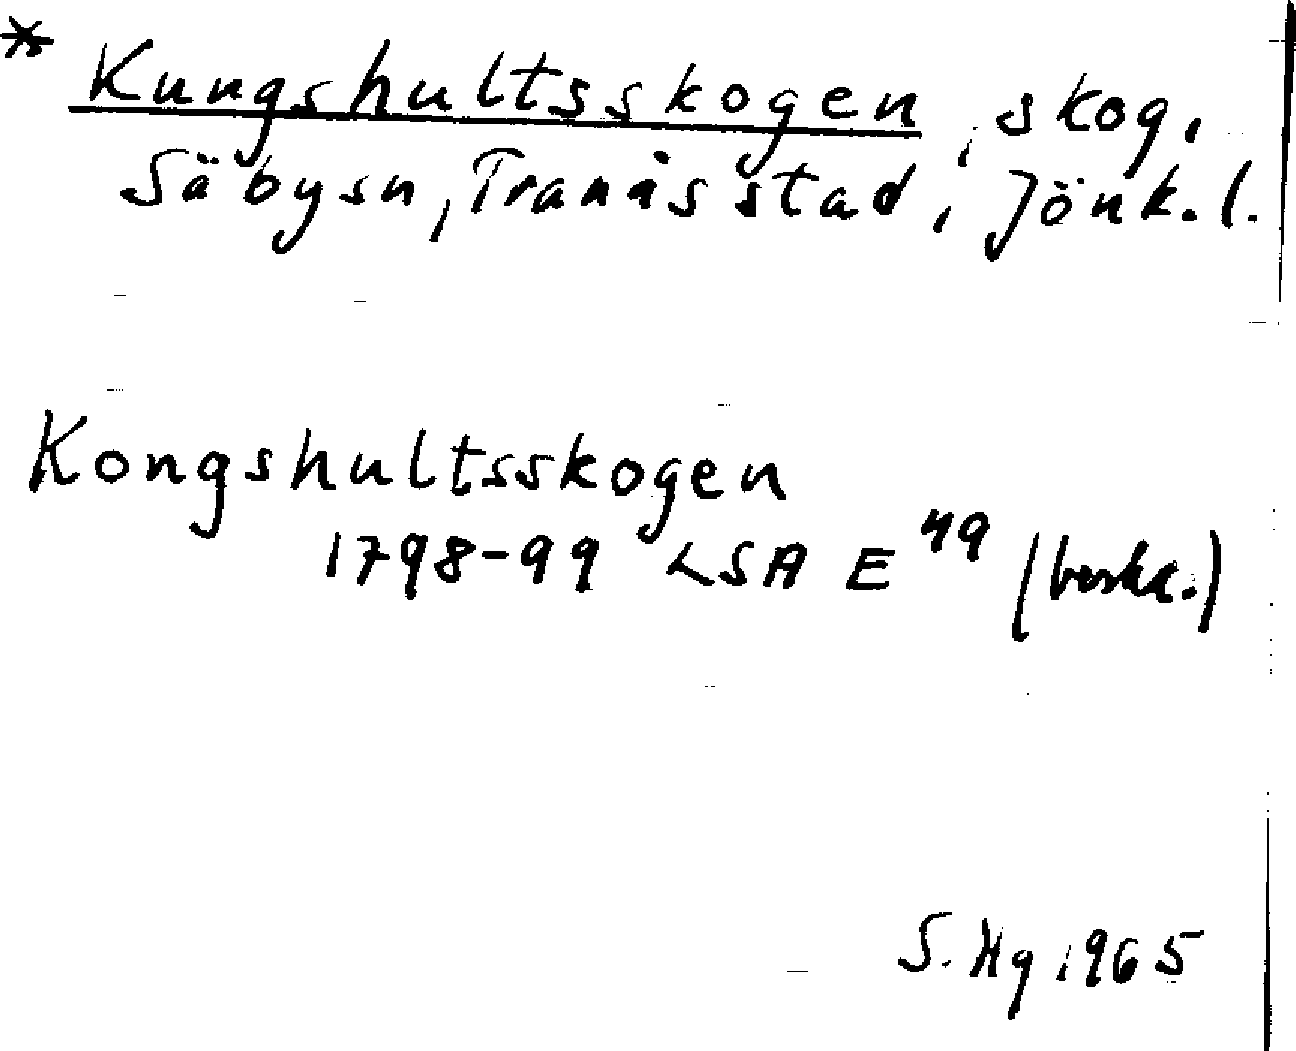 * Kungshultsskogen, skog,
Säbysn, Tranås stad, Jönk. l.
Kongshultsskogen
1798-99 LSA E 49 (beskr.)
S. Hg 1965